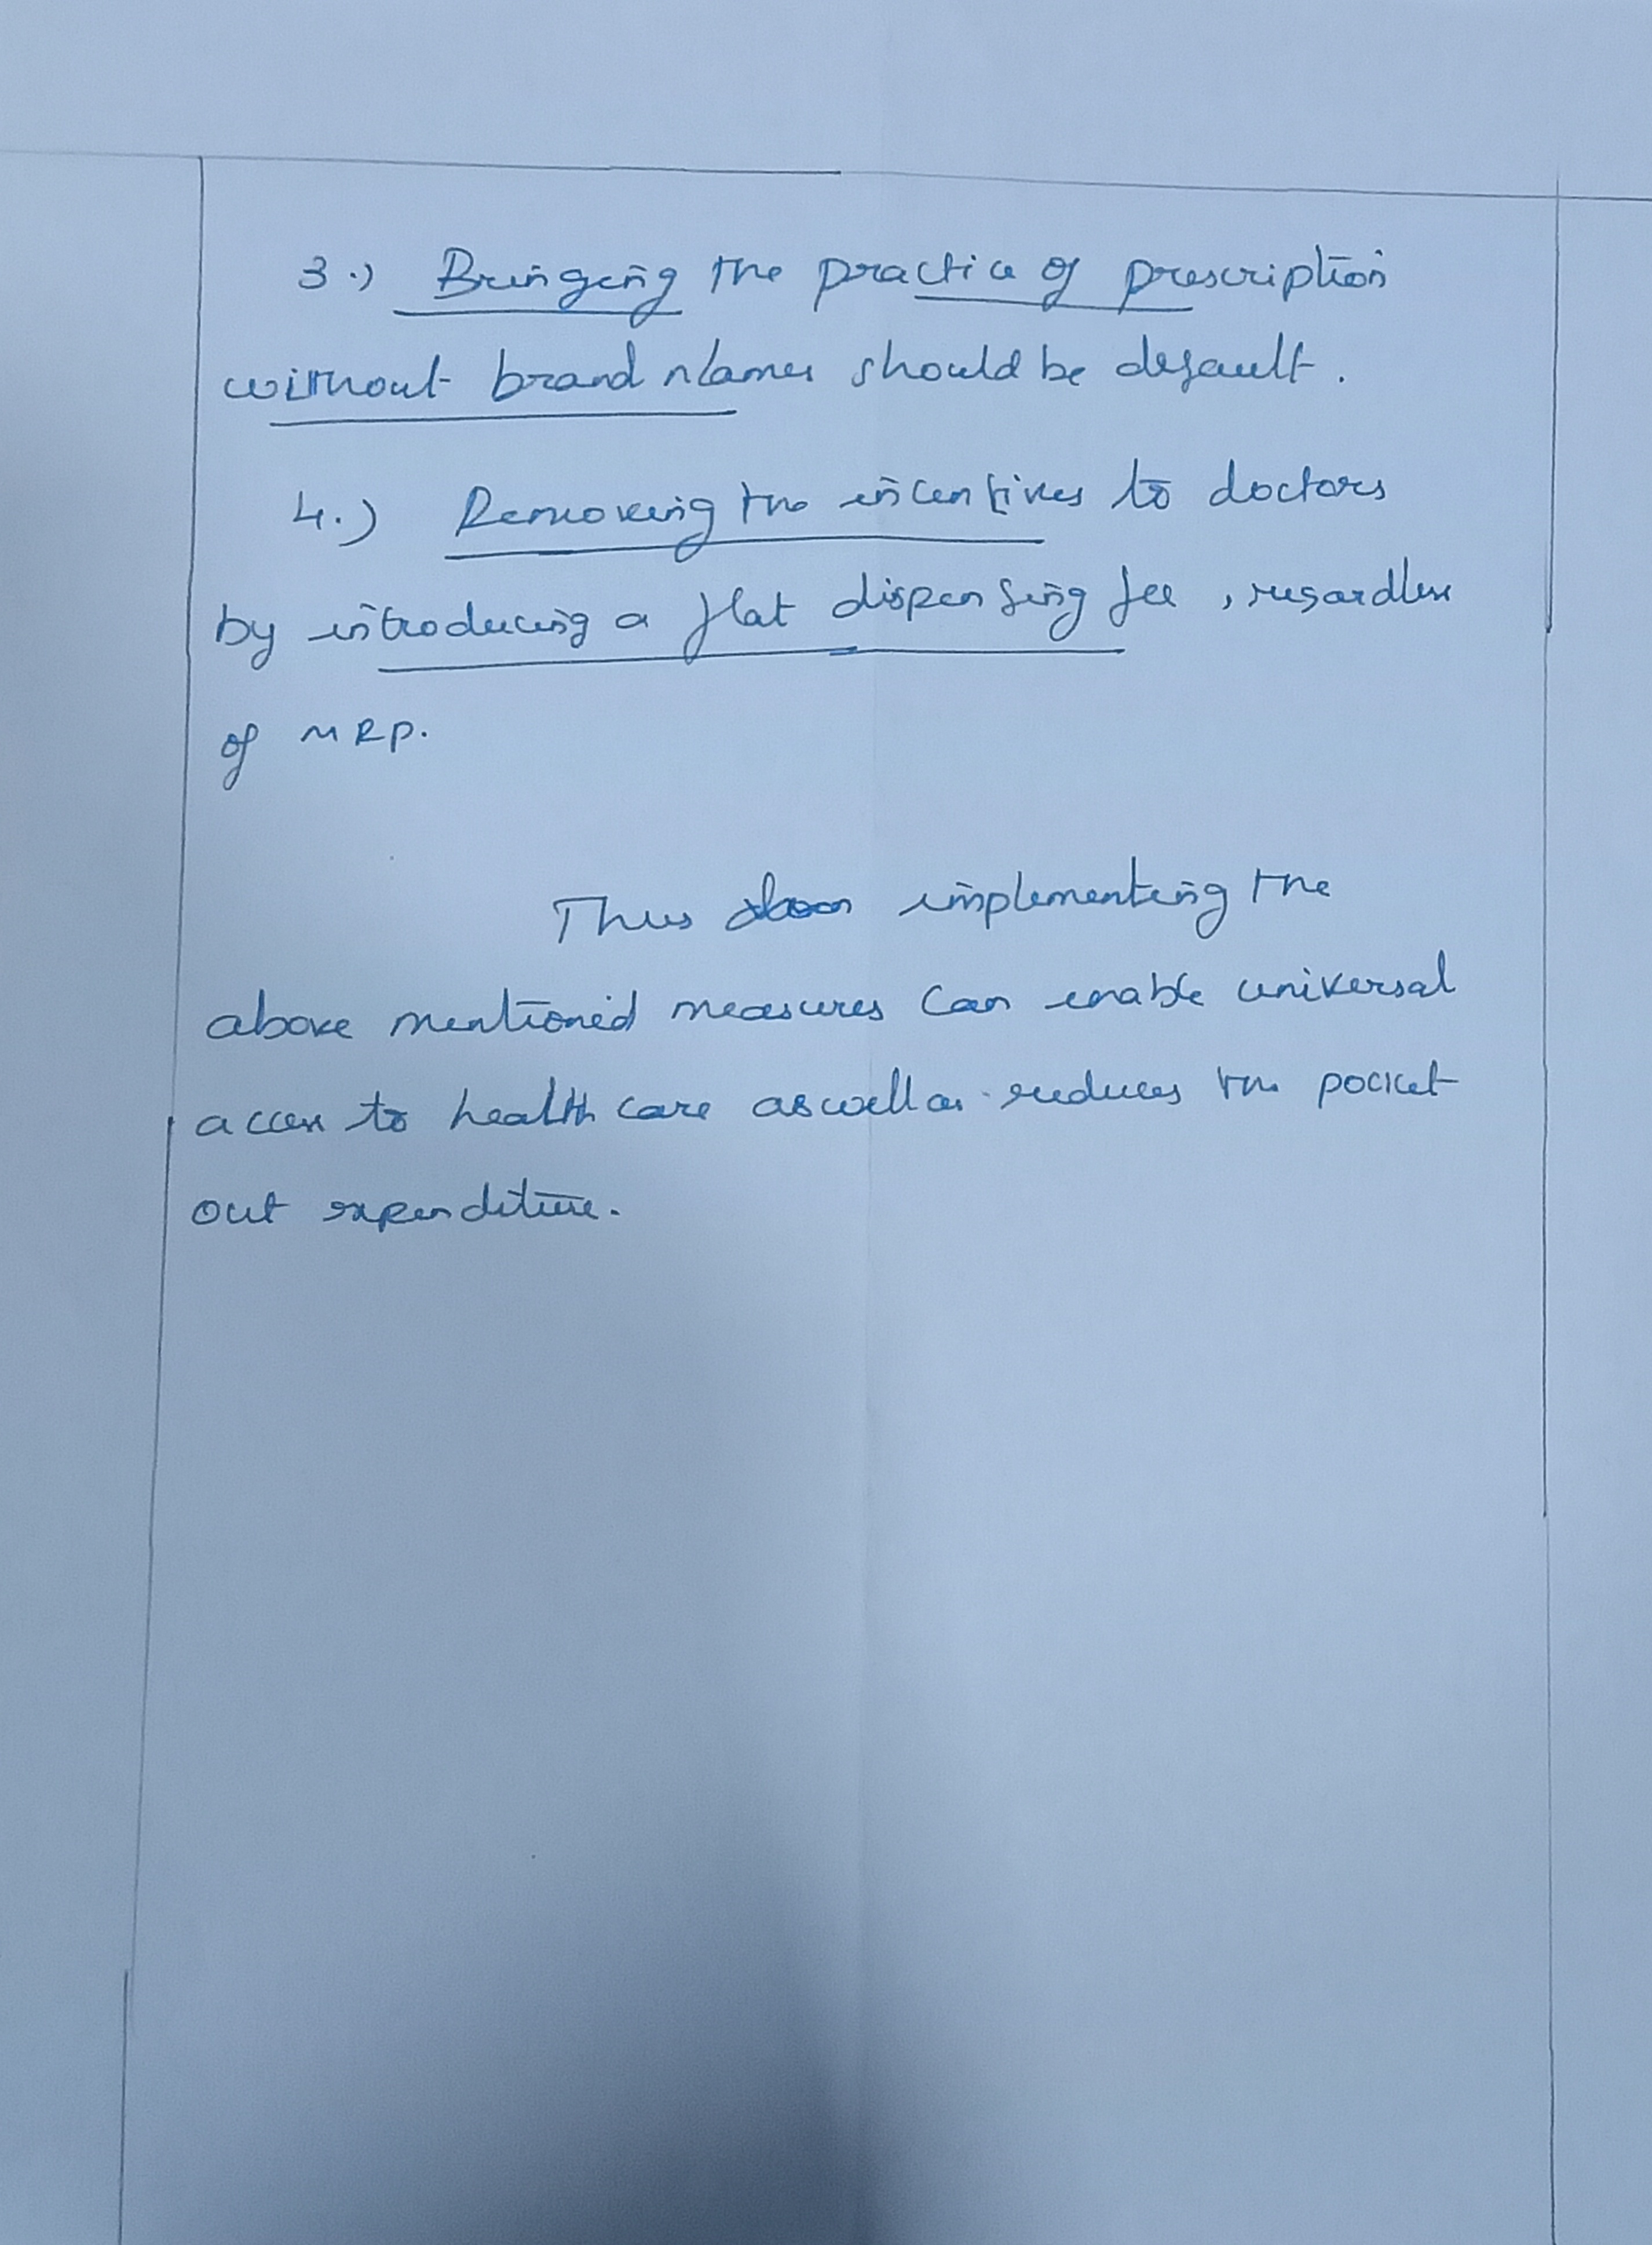 3.) Bringing the practice of prescription
without brand names should be default.
4.) Removing the incentives to doctors
by introducing a flat dispensing fee, regardless
of MRP.
Thus implementing the
above mentioned measures can enable universal
access to health care aswell as reduces the pocket
out expenditure.